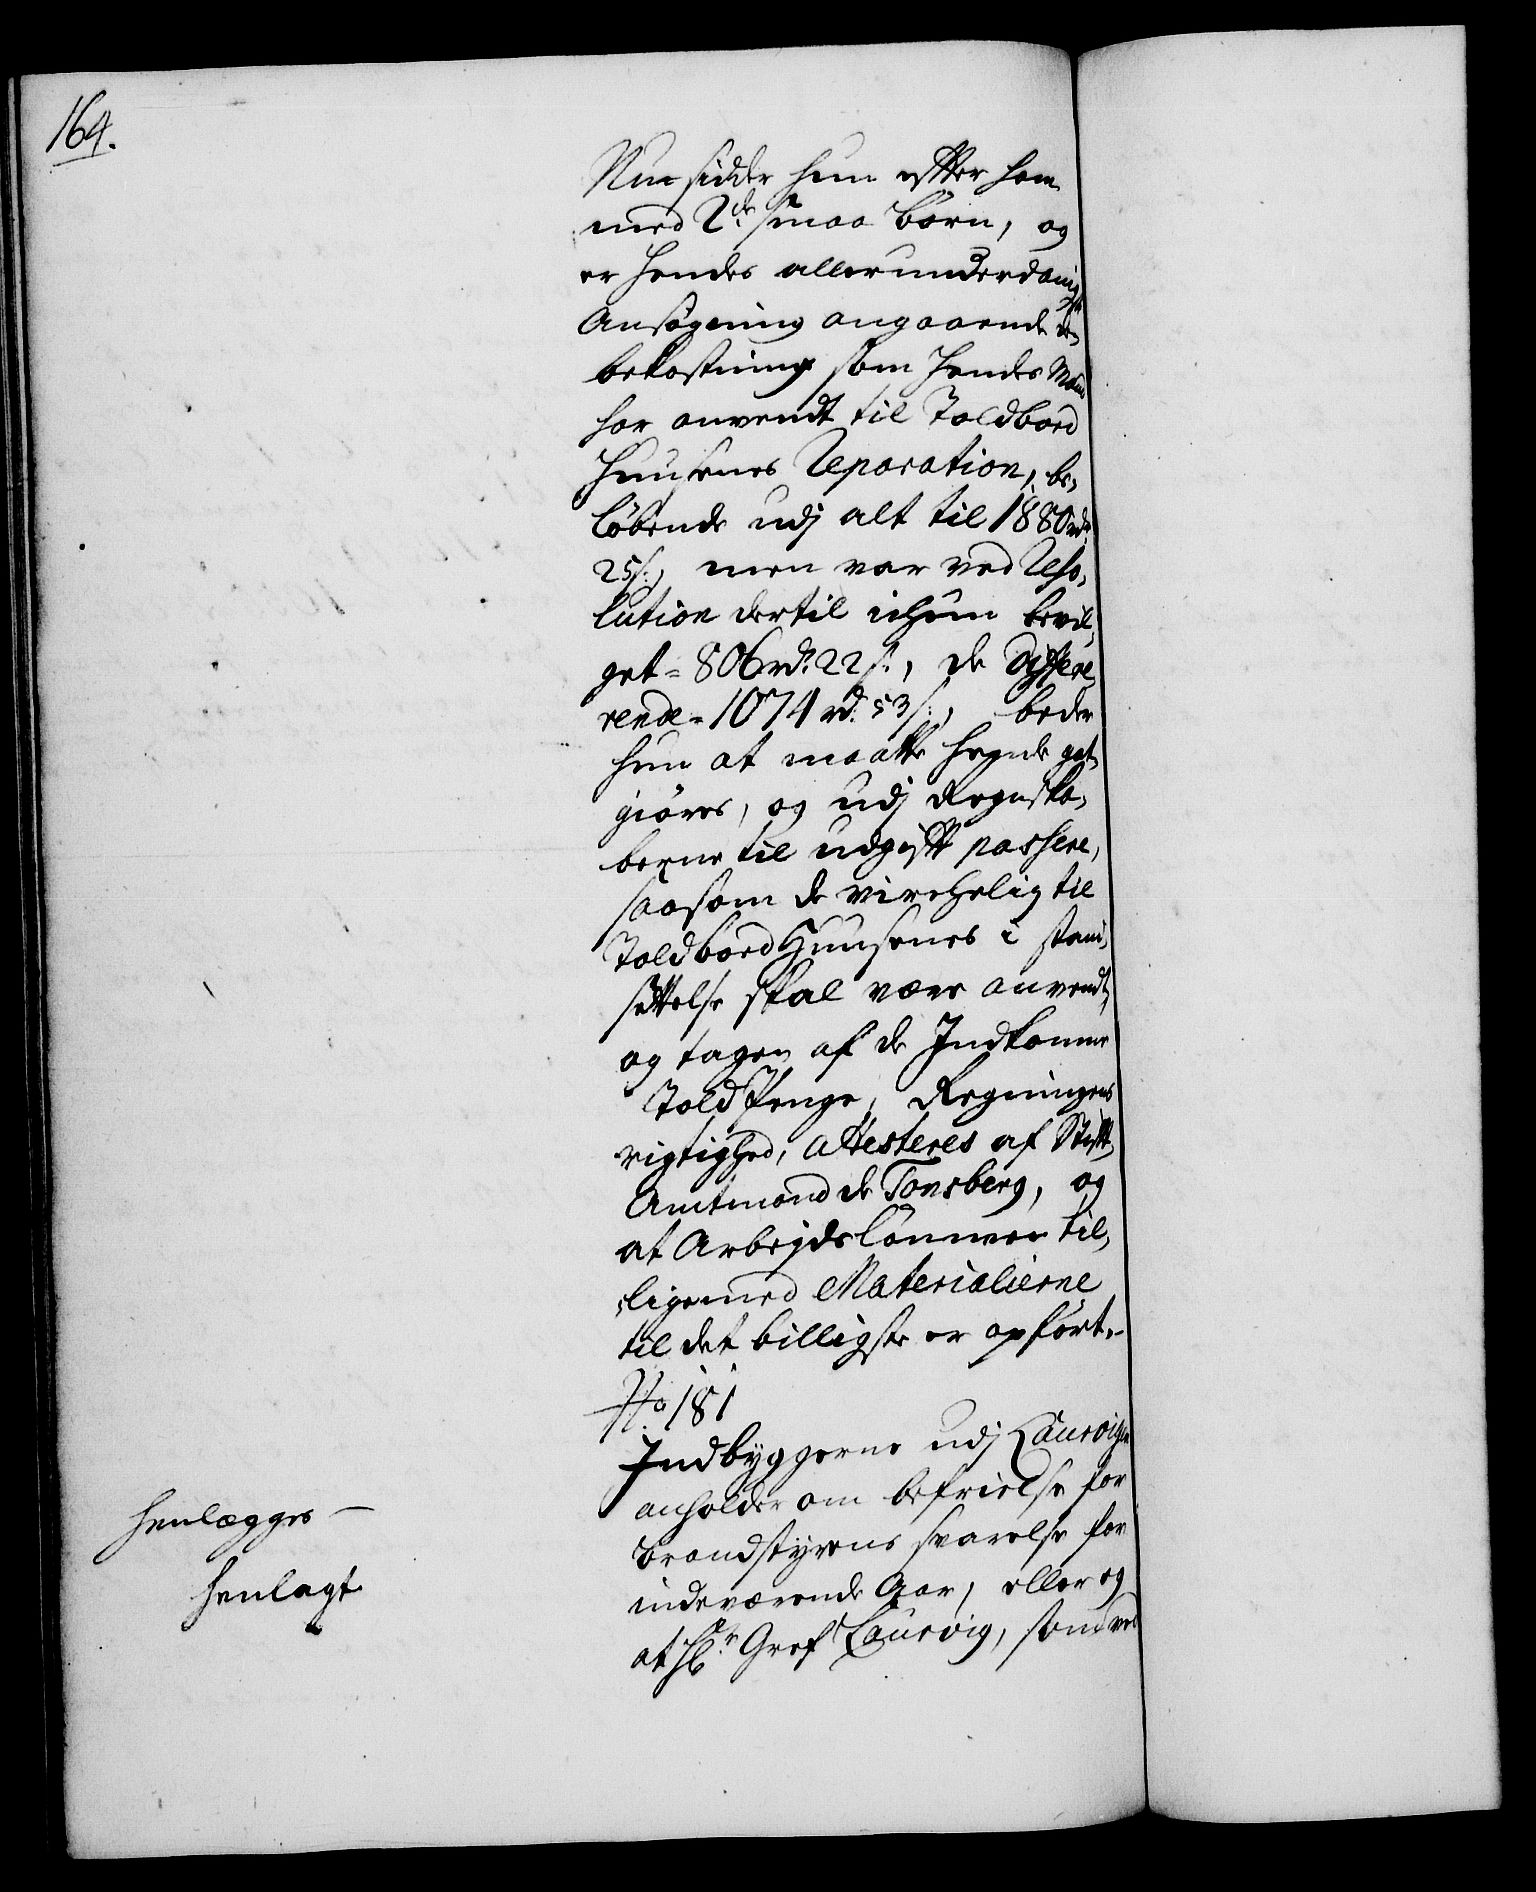 164.
Nu sidder hun efter ham
med 2de smaa börn, og
er hendes allerunderdanigste
Ansögning angaaende den
bekostning som hendes Mand
har anvendt til Toldbod
Huusenes Reparation, be,
löbende udj alt til 1880 rdr
25 s:, men var ved Reso,
lution dertil ickun bevil,
get = 806 rdr. 22 s:, de differe,
rende = 1074 rd: 53 s:, beder
hun at maatte godt
giöres, og udj Regnska,
berne til udgift passere,
saasom de virchelig til
Toldbod Huusenes i stand,
sættelse skal være anvendt,
og tagen af de Indkomne
Told Penge, Regningens
rigtighed, attesteres af Stift
Amtmand de Tonsberg, og
at Arbejdslönnen til,
ligemed Materialierne
til det billigste er opfört.-
No. 181
Indbyggerne udj Laurvigen
anholder om befrielse for
brandstyrens svarelse for
indeværende Aar, eller og
at Hr. Gref Laurvig, som ved
henlægges —
henlagt